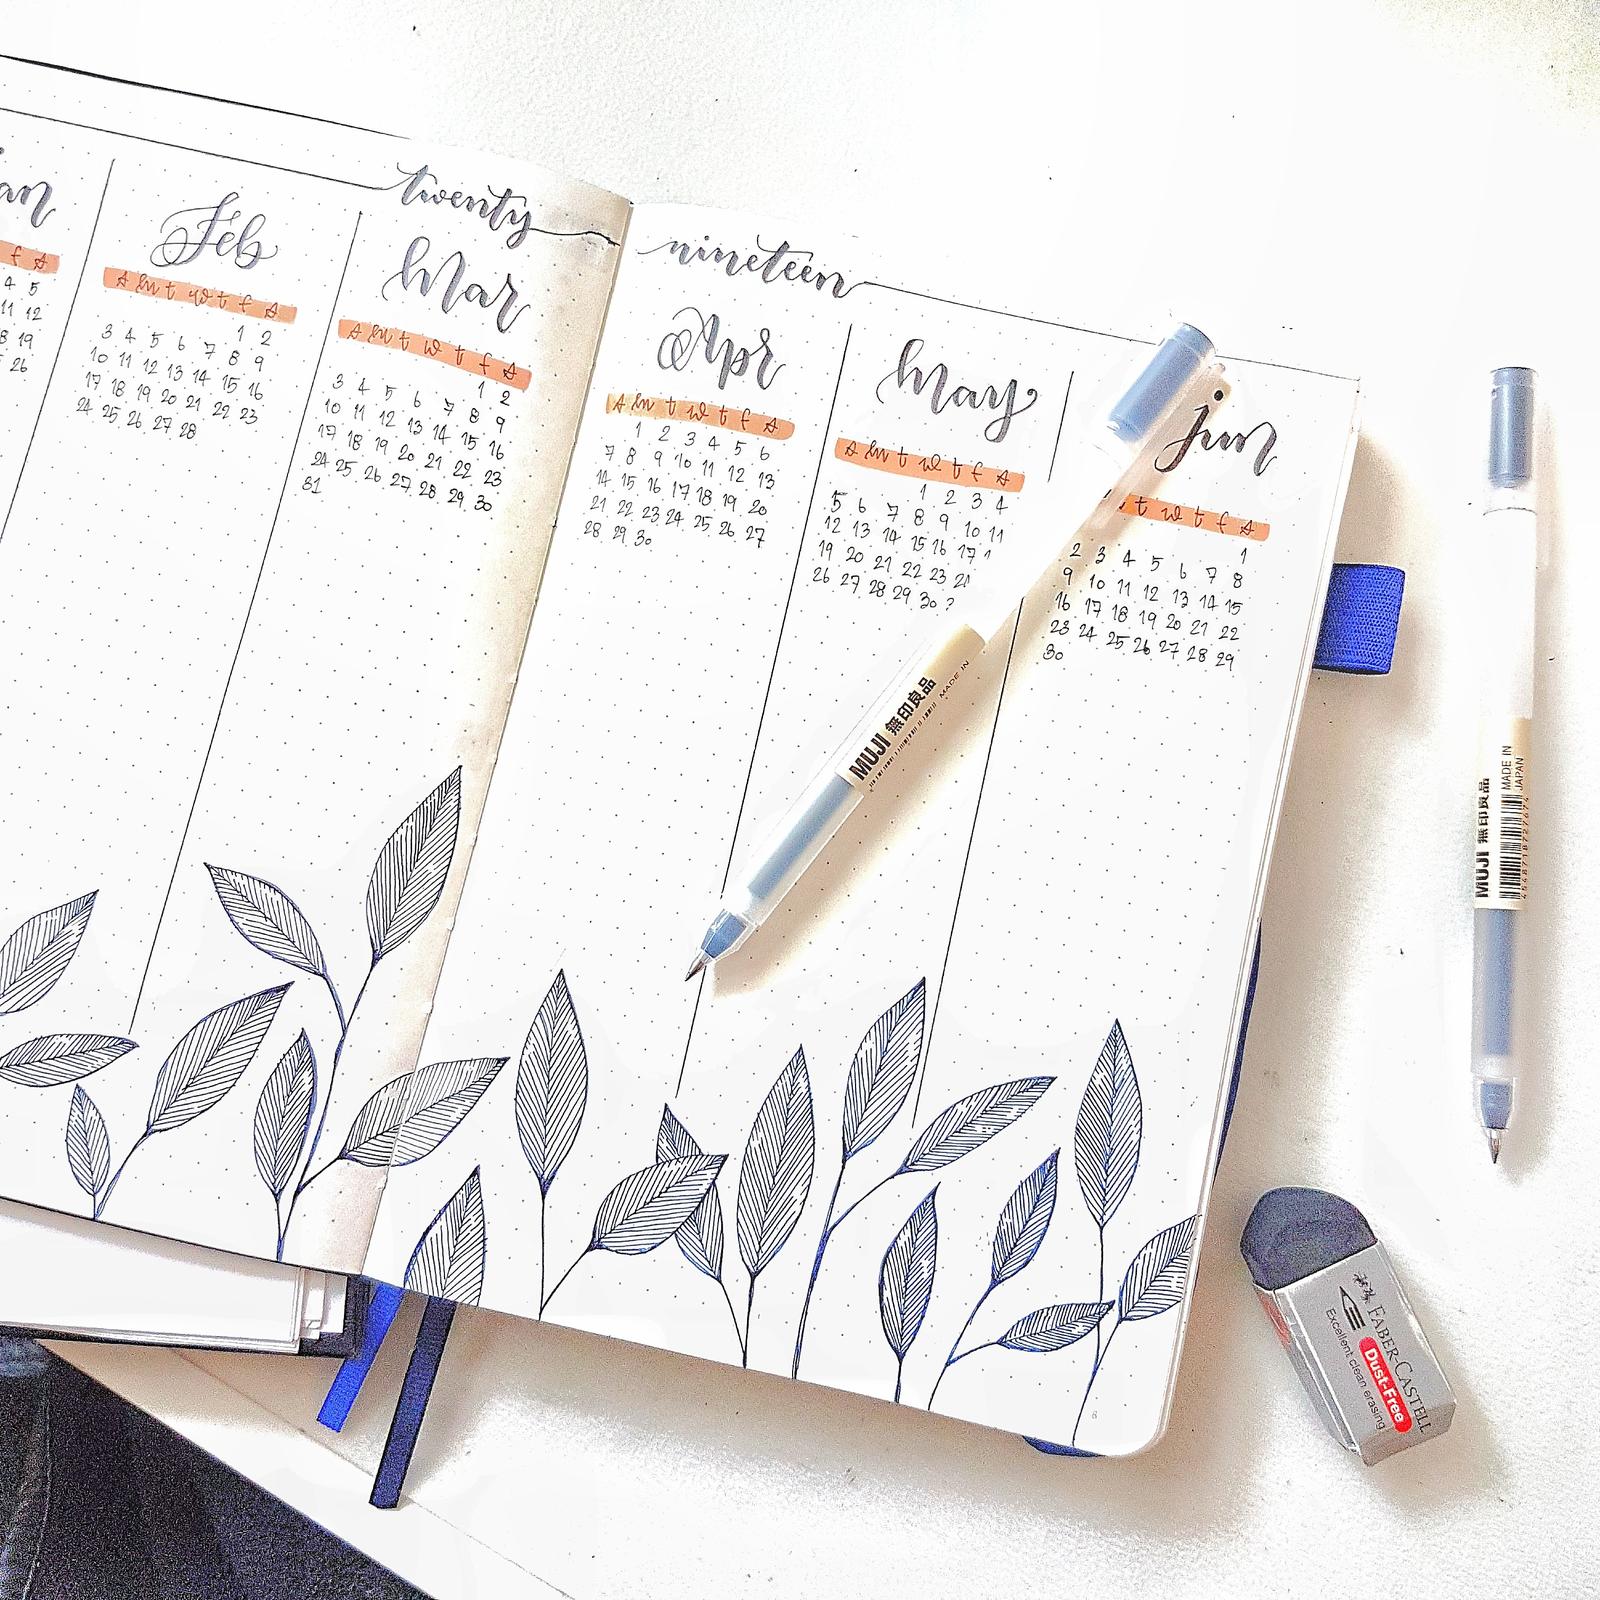 twenty nineteen
an
f s
4 5
11 12
19
26
Feb
s m t w t f s
1 2
3 4 5 6 7 8 9
10 11 12 13 14 15 16
17 18 19 20 21 22 23
24 25 26 27 28
Mar
s m t w t f s
1 2
3 4 5 6 7 8 9
10 11 12 13 14 15 16
17 18 19 20 21 22 23
24 25 26 27 28 29 30
31
Apr
s m t w t f s
1 2 3 4 5 6
7 8 9 10 11 12 13
14 15 16 17 18 19 20
21 22 23 24 25 26 27
28 29 30
May
s m t w t f s
1 2 3 4
5 6 7 8 9 10 11
12 13 14 15 16 17
19 20 21 22 23
26 27 28 29 30
jun
t w t f s
1
2 3 4 5 6 7 8
9 10 11 12 13 14 15
16 17 18 19 20 21 22
23 24 25 26 27 28 29
30
8
MUJI 無印良品 MADE IN
MUJI 無印良品 MADE IN
JAPAN
FABER-CASTELL
Dust-Free
Excellent clean erasing